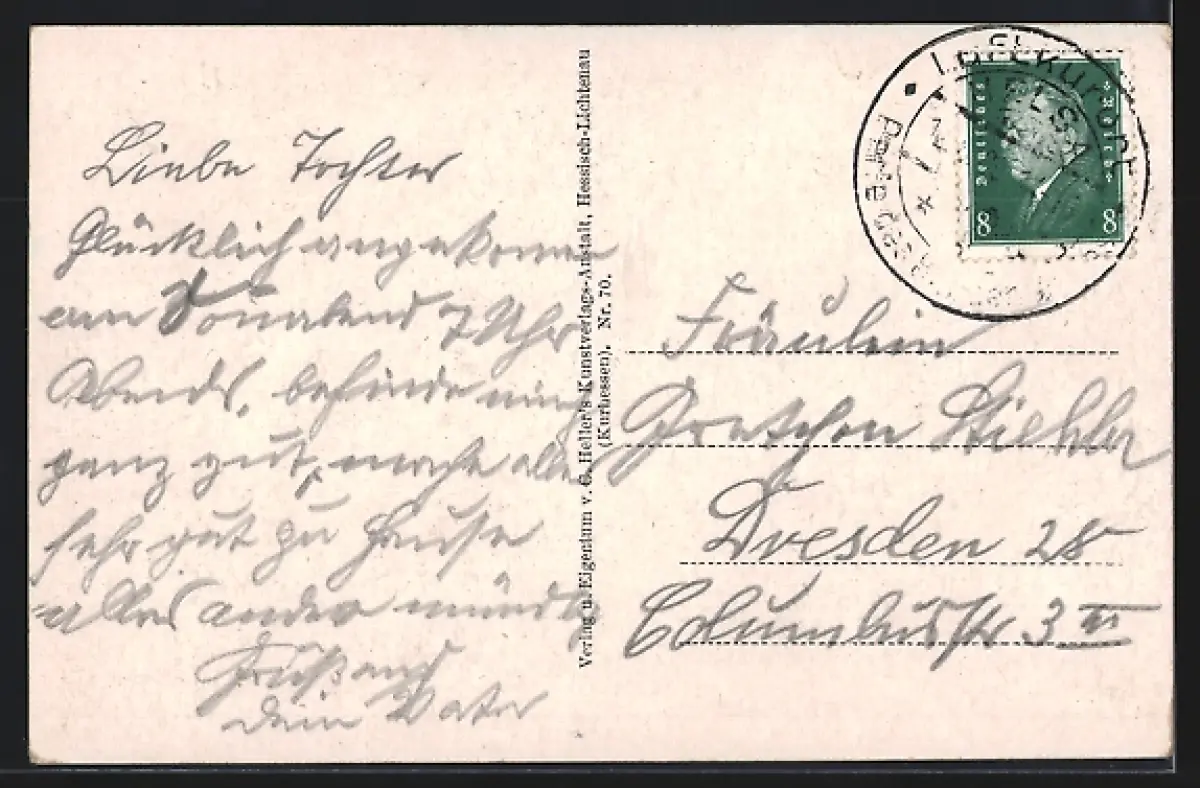 Liebe Tochter
Glücklich angekommen
am Sonnabend 7 Uhr
Abends, befinde mich
ganz gut, mache alle
sehr gut zu Hause
alles andre mündlich
Grüßend
dein Vater
Verlag u. Eigentum v. G. Heller's Kunstverlags-Anstalt, Hessisch-Lichtenau
(Kurhessen). Nr. 70.
Luftkurort
Deutsches Reich
8 8
Fräulein
Gretchen Stiehler
Dresden 28
Columbusstr 3 III